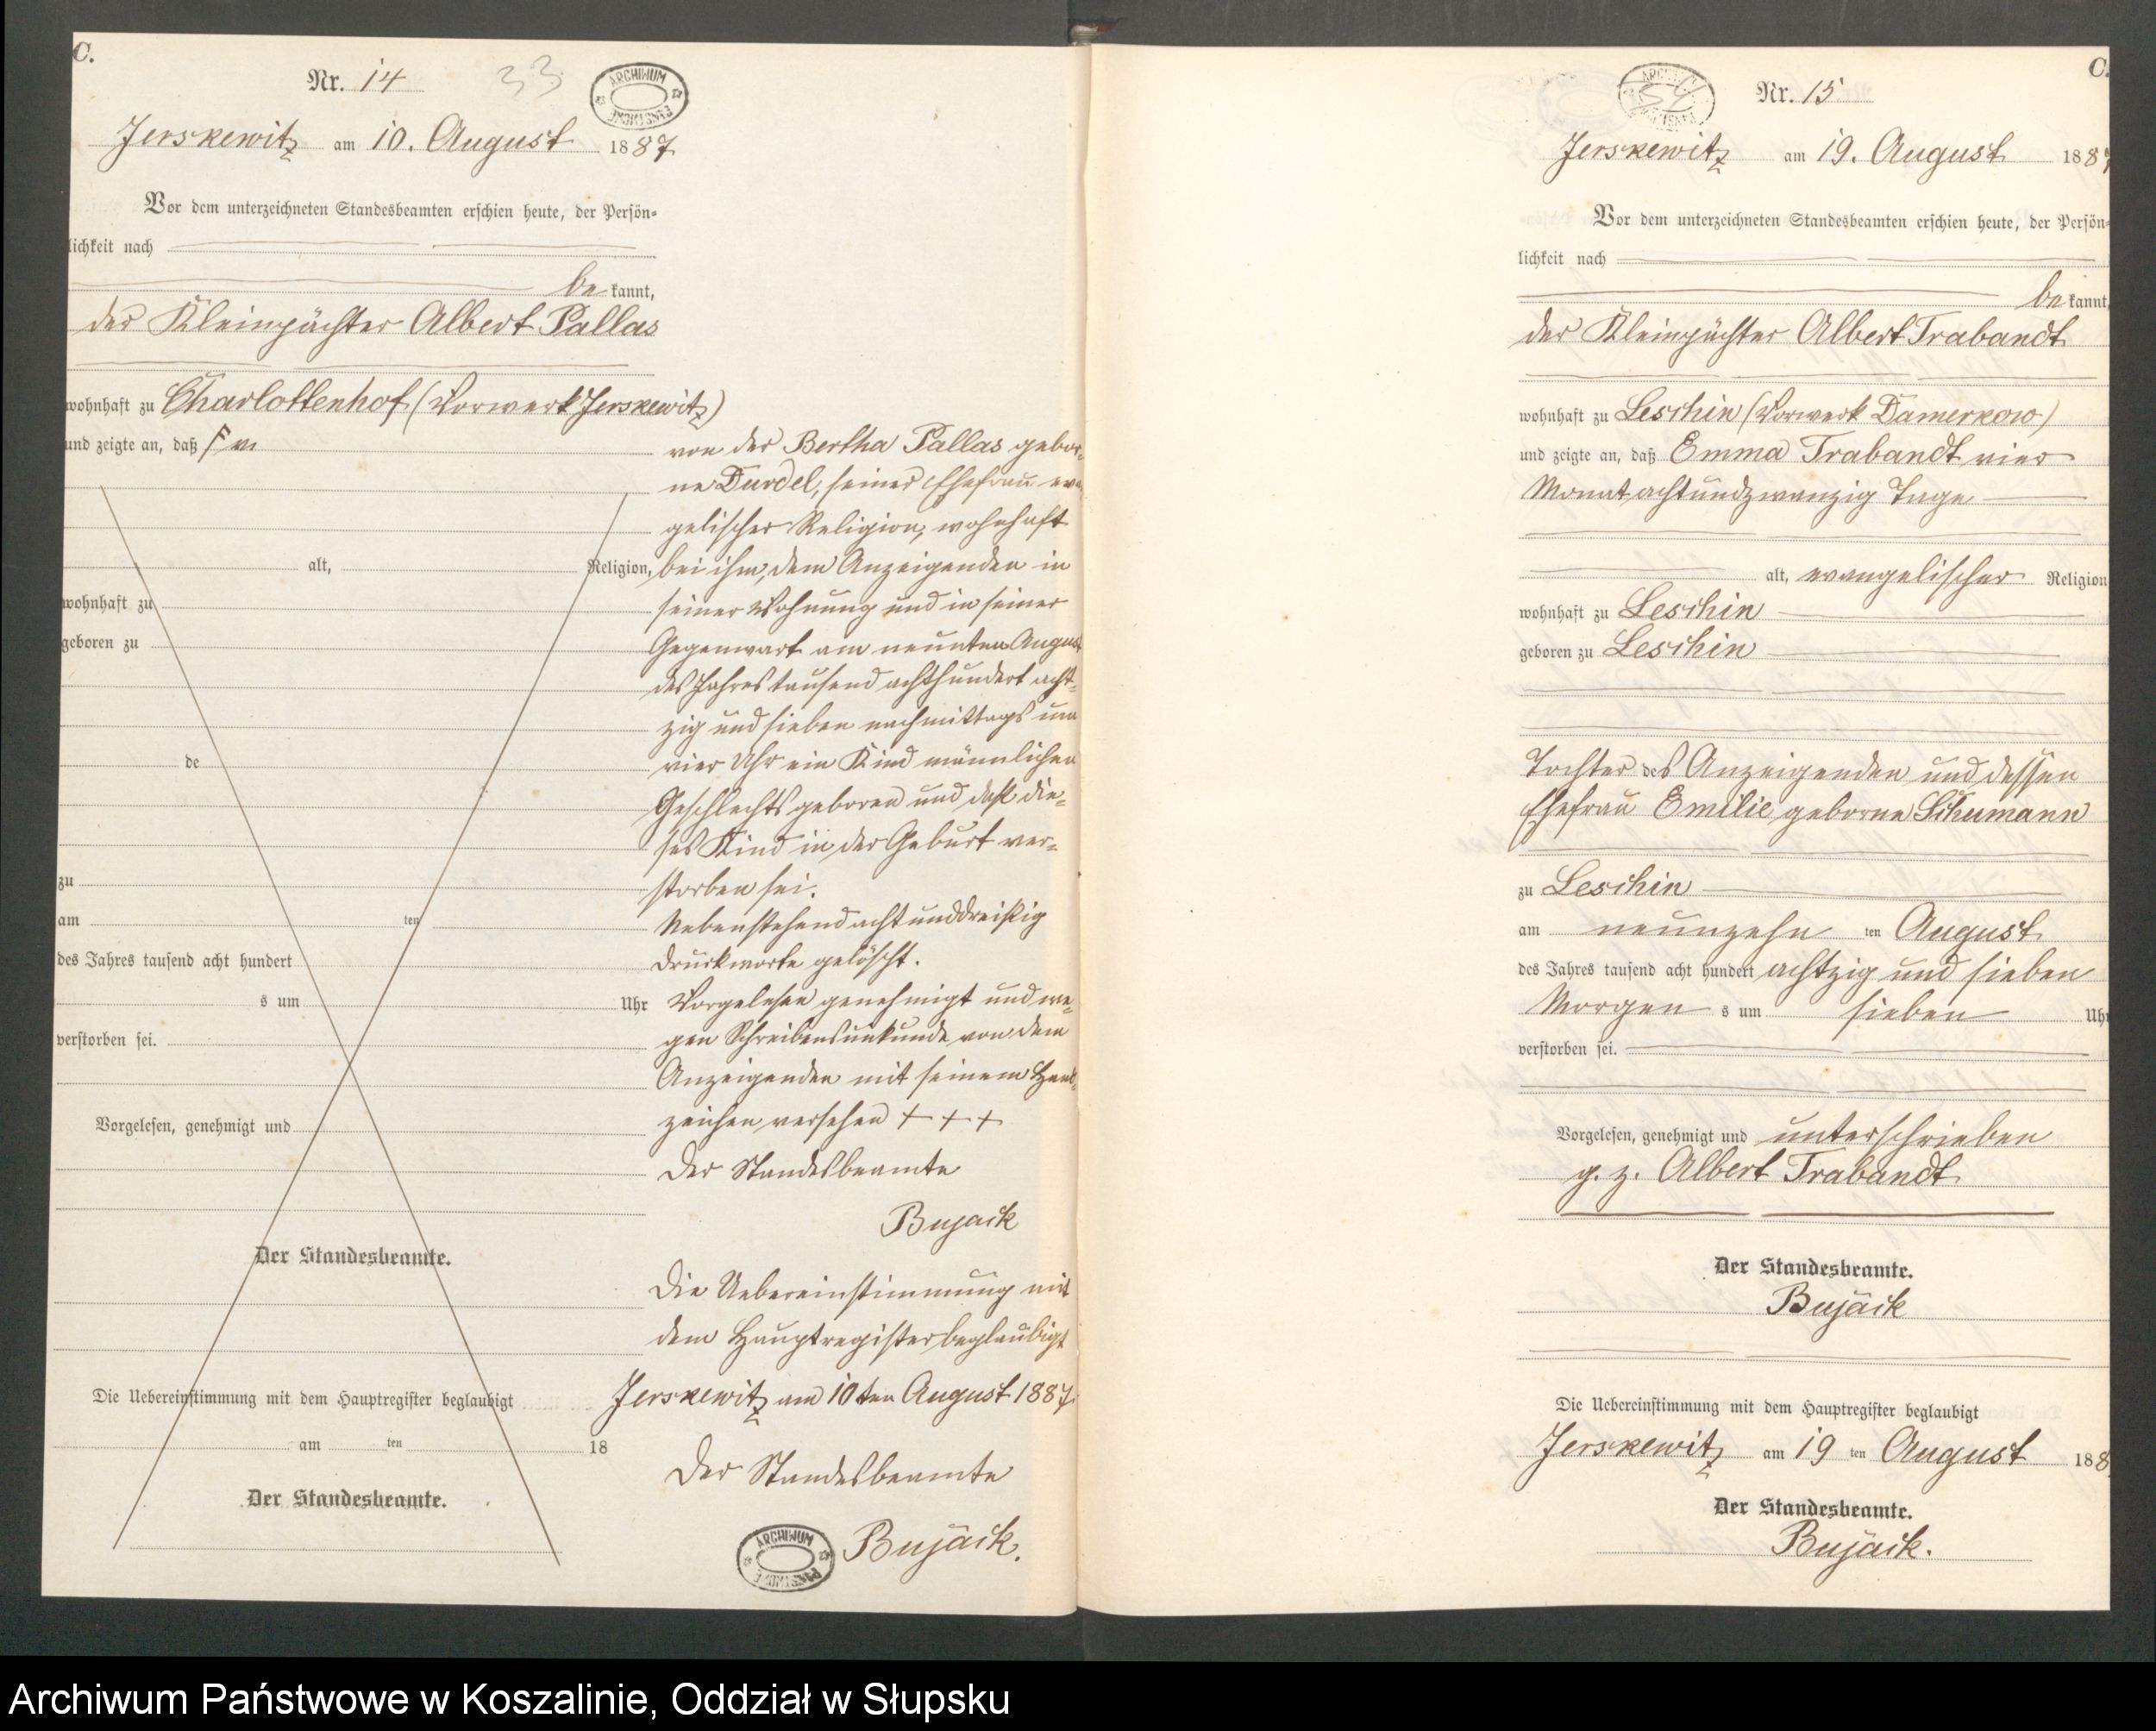 C.
Nr. 14
33
ARCHIWUM PAŃSTWOWE
Jerskewitz am 10. August 1887
Vor dem unterzeichneten Standesbeamten erschien heute, der Persön-
lichkeit nach
be kannt,
der Kleinpächter Albert Pallas
wohnhaft zu Charlottenhof (Vorwerk Jerskewitz)
und zeigte an, daß
alt, Religion,
wohnhaft zu
geboren zu
de
zu
am ten
des Jahres tausend acht hundert
s um Uhr
verstorben sei.
Vorgelesen, genehmigt und
Der Standesbeamte.
Die Uebereinstimmung mit dem Hauptregister beglaubigt
am ten 18
Der Standesbeamte.
von der Bertha Pallas gebor-
ne Durdel, seiner Ehefrau evan
gelischer Religion, wohnhaft
bei ihm, dem Anzeigenden in
seiner Wohnung und in seiner
Gegenwart am neunten August
des Jahres tausend achthundert acht-
zig und sieben nachmittags um
vier Uhr ein Kind männlichen
Geschlechts geboren und daß die-
ses Kind in der Geburt ver-
storben sei.
Nebenstehend achtunddreißig
Druckworte gelöscht.
Vorgelesen genehmigt und we-
gen Schreibensunkunde von dem
Anzeigenden mit seinem Hand-
zeichen versehen + + +
Der Standesbeamte
Bujack
Die Uebereinstimmung mit
dem Hauptregister beglaubigt
Jerskewitz am 10ten August 1887.
Der Standesbeamte
Bujack.
ARCHIWUM PAŃSTWOWE
C.
Nr. 15
Jerskewitz am 19. August 1887
Vor dem unterzeichneten Standesbeamten erschien heute, der Persön-
lichkeit nach
be kannt,
der Kleinpächter Albert Trabandt
wohnhaft zu Leschin (Vorwerk Damerkow)
und zeigte an, daß Emma Trabandt vier
Monat achtundzwanzig Tage
alt, evangelischer Religion
wohnhaft zu Leschin
geboren zu Leschin
Tochter des Anzeigenden und dessen
Ehefrau Emilie geborne Schumann
zu Leschin
am neunzehn ten August
des Jahres tausend acht hundert achtzig und sieben
Morgen s um sieben Uhr
verstorben sei.
Vorgelesen, genehmigt und unterschrieben
g. z. Albert Trabandt
Der Standesbeamte.
Bujack
Die Uebereinstimmung mit dem Hauptregister beglaubigt
Jerskewitz am 19 ten August 188
Der Standesbeamte.
Bujack.
Archiwum Państwowe w Koszalinie, Oddział w Słupsku